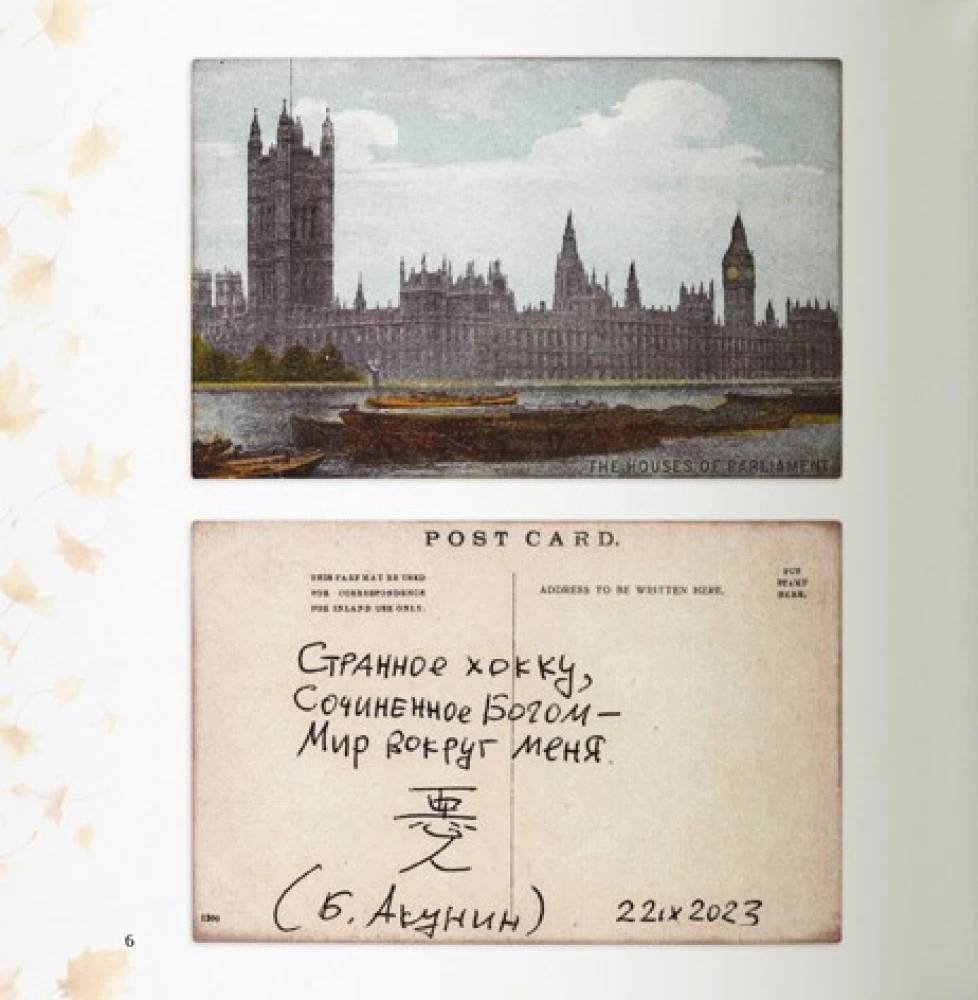 THE HOUSES OF PARLIAMENT
POST CARD.
THIS PART MAY BE USED
FOR CORRESPONDENCE
FOR INLAND USE ONLY.
ADDRESS TO BE WRITTEN HERE.
PUT
STAMP
HERE.
Странное хокку,
Сочиненное Богом –
Мир вокруг меня.
悪
人
(Б. Акунин)
22 IX 2023
6